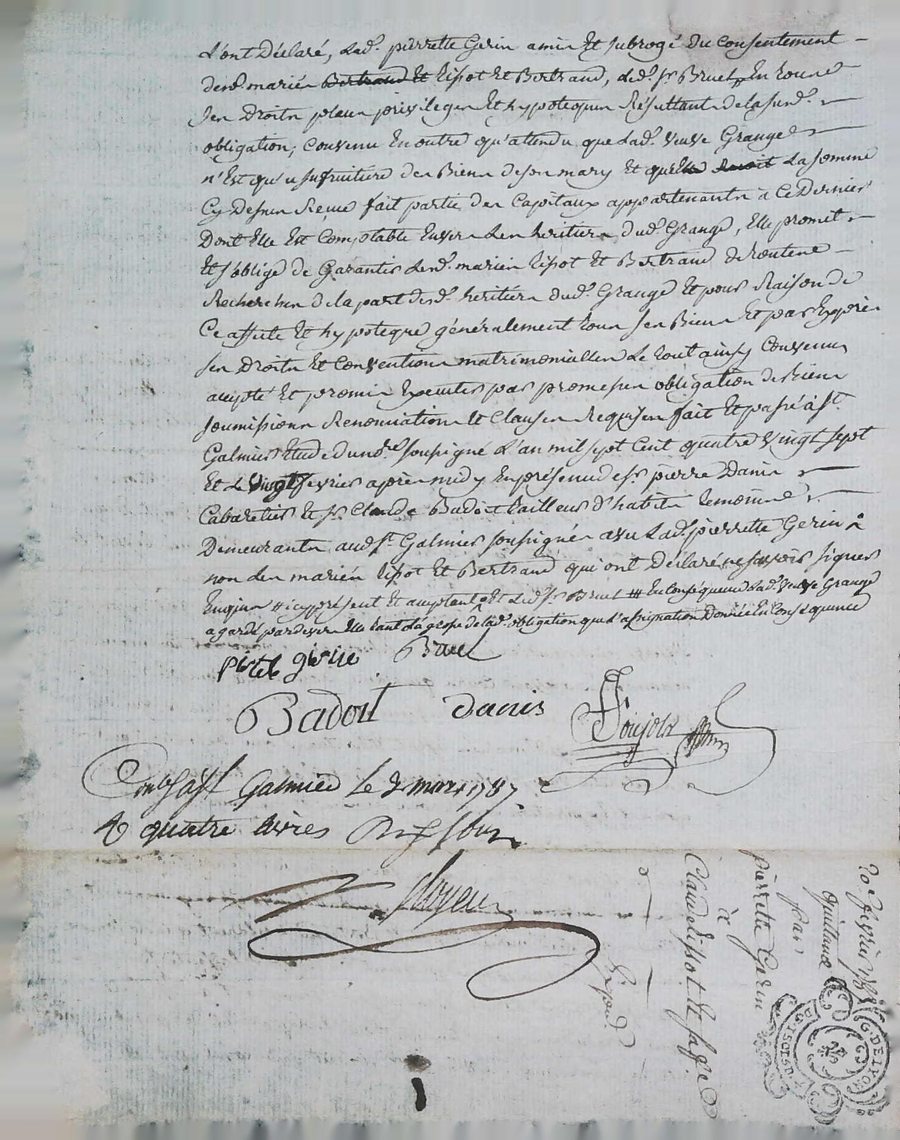 L'ont déclaré, lad.e pierrette Gerin a mis Et subrogé du consentement
desd. mariés Bertrand Et Lissot Et Bertrand, led. sr Bruel En tous
ses Droits plaux privileges Et hypoteques Résultant de la susd.
obligation; convenu En outre qu'attendu que lad.e veuve Grange
n'Est qu'usufruitière des Biens de son mary Et quelle devoit La somme
Cy Dessus Reçue fait partie des Capitaux appartenants à Ce Dernier
Dont Elle Est Comptable Envers Les heritiers dud. Grange, Elle promet
Et s'oblige de Garantir lesd. mariés Lissot Et Bertrand de toutes
Recherches de la part desd. heritiers dud. Grange Et pour Raison de
Ce affecte Et hypoteque généralement tous ses Biens Et par Exprès
ses Droits Et Conventions matrimonialles Le tout ainsy Convenu
accepté Et promis Executer par promesses obligation de Biens
soumissions Renonciations Et Clauses Requises fait Et passé à St.
Galmier Etude du no.re soussigné L'an mil sept Cent quatre vingt sept
Et Le vingt fevrier après midy En présence de sr. pierre Danis
Cabaretier Et sr. Claude Badoit tailleur d'habits temoins
Demeurants aud. St. Galmier soussignés avec Lad.e pierrette Gerin
non Les mariés Lissot Et Bertrand qui ont Déclaré ne savoir signer
Enquis # icy présent Et acceptant Et Led. sr. Bruel ## En conséquence Lad.e veuve Grange
a gardé pardevers Elle tant La grosse de lad.e obligation que L'assignation Donnée En Conséquence
Bruel
Badoit Danis Ponjols
St Galmier Le 2 mars 1787
quatre livres
20 fevrier 1787
quittance
par
pierrette Gerin
à
Claude Lissot Et sa fe
G. DE LYON